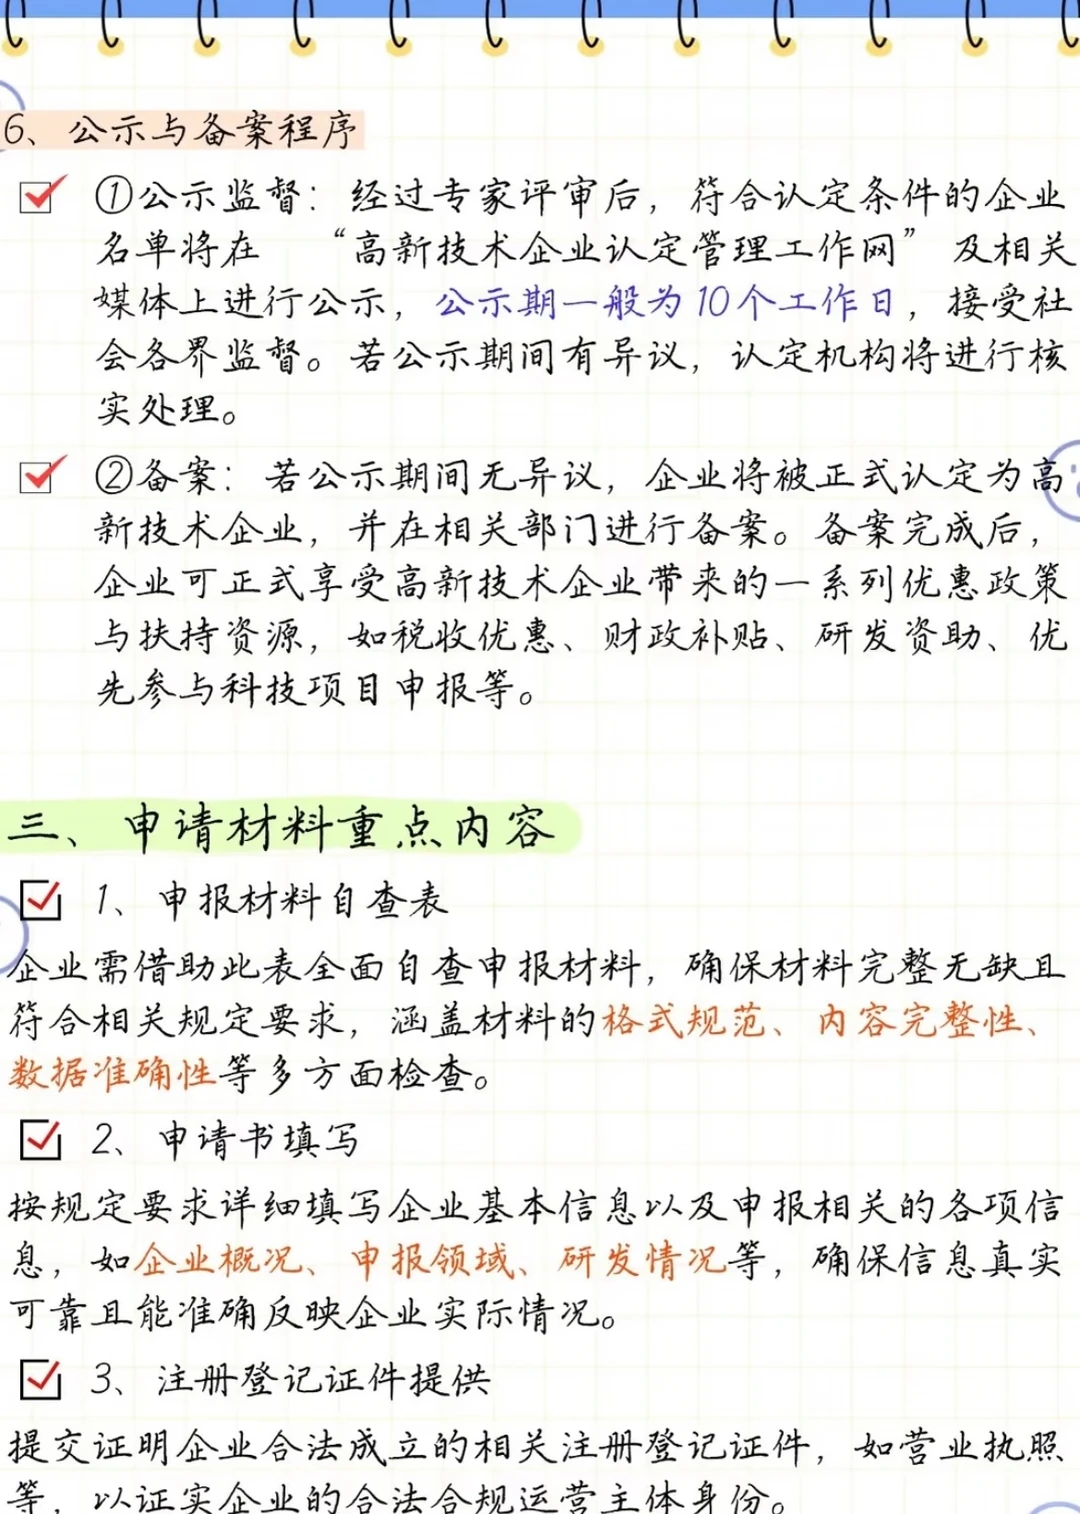 6、公示与备案程序
①公示监督：经过专家评审后，符合认定条件的企业
名单将在 “高新技术企业认定管理工作网” 及相关
媒体上进行公示，公示期一般为10个工作日，接受社
会各界监督。若公示期间有异议，认定机构将进行核
实处理。
②备案：若公示期间无异议，企业将被正式认定为高
新技术企业，并在相关部门进行备案。备案完成后，
企业可正式享受高新技术企业带来的一系列优惠政策
与扶持资源，如税收优惠、财政补贴、研发资助、优
先参与科技项目申报等。
三、申请材料重点内容
1、申报材料自查表
企业需借助此表全面自查申报材料，确保材料完整无缺且
符合相关规定要求，涵盖材料的格式规范、内容完整性、
数据准确性等多方面检查。
2、申请书填写
按规定要求详细填写企业基本信息以及申报相关的各项信
息，如企业概况、申报领域、研发情况等，确保信息真实
可靠且能准确反映企业实际情况。
3、注册登记证件提供
提交证明企业合法成立的相关注册登记证件，如营业执照
等，以证实企业的合法合规运营主体身份。